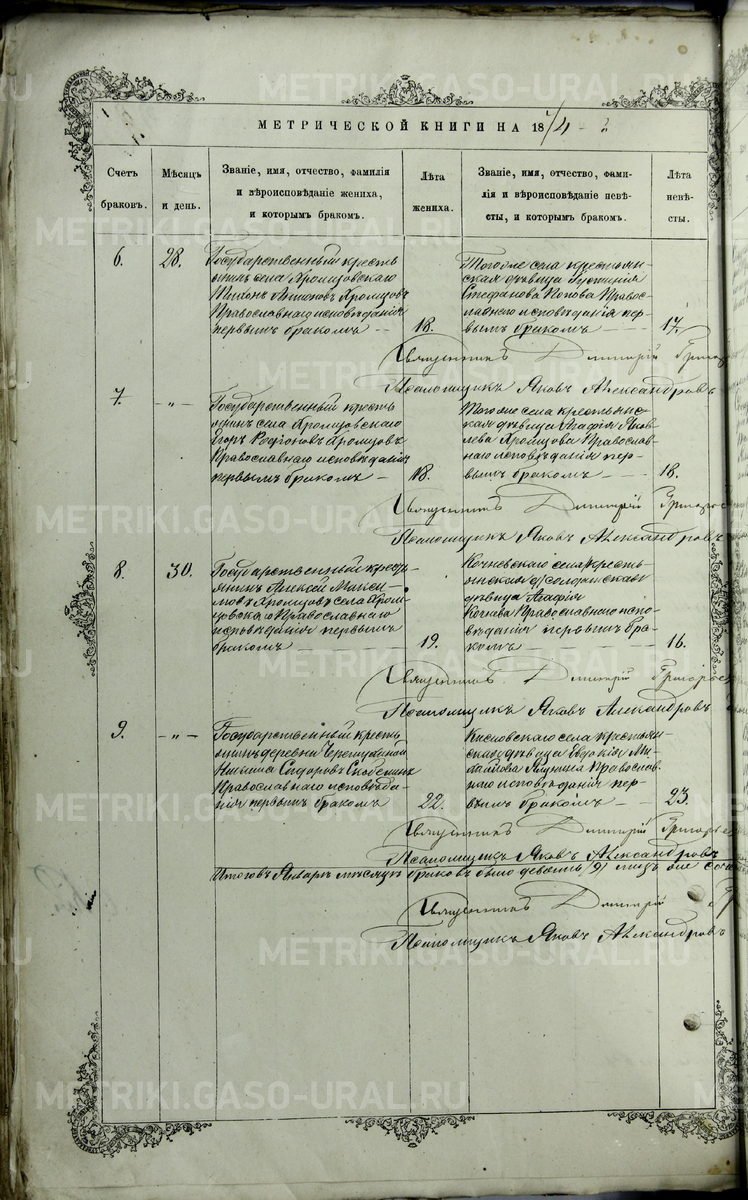 METRIKI.GASO-URAL.RU
МЕТРИЧЕСКОЙ КНИГИ НА 18
Счетъ браковъ.
Мѣсяцъ и день.
Званіе, имя, отчество, фамилія
и вѣроисповѣданіе жениха,
и которымъ бракомъ.
Лѣта жениха.
Званіе, имя, отчество, фами-
лія и вѣроисповѣданіе невѣ-
сты, и которымъ бракомъ.
Лѣта невѣ-
сты.
6.
28.
Государственный кресть
янинъ села Хромцовскаго
Антоновъ Хромцовъ
Православнаго исповѣданія
первымъ бракомъ
18.
Тогоже села крестьян-
ская дѣвица Іустинія
Стефанова Попова Право-
славнаго исповѣданія пер-
вымъ бракомъ
17.
Священникъ Димитрій
Псаломщикъ Яковъ Александровъ
7.
-„-
Государственный кресть
янинъ села Хромцовскаго
Егоръ Родіоновъ Хромцовъ
Православнаго исповѣданія
первымъ бракомъ
18.
Тогоже села крестьянс-
кая дѣвица Агафія Яков
лева Хромцова Православ-
наго исповѣданія пер-
вымъ бракомъ
18.
Священникъ Димитрій
Псаломщикъ Яковъ Александровъ
8.
30.
Государственный кресть
янинъ Алексѣй Макси-
мовъ Хромцовъ села Хром
цовскаго Православнаго
исповѣданія первымъ
бракомъ
19.
села кресть-
янская
дѣвица Агафія
Православнаго испо-
вѣданія первымъ бра-
комъ
16.
Священникъ Димитрій
Псаломщикъ Яковъ Александровъ
9.
-„-
Государственный кресть
янинъ деревни
Сидоровъ
Православнаго исповѣда-
нія первымъ бракомъ
22.
Кисловскаго села крестьян-
ская дѣвица Евдокія Ми-
хайлова Православ-
наго исповѣданія пер-
вымъ бракомъ
23.
Священникъ Димитрій
Псаломщикъ Яковъ Александровъ
Итого въ Январѣ мѣсяцѣ браковъ было девять (9)
Священникъ Димитрій
Псаломщикъ Яковъ Александровъ